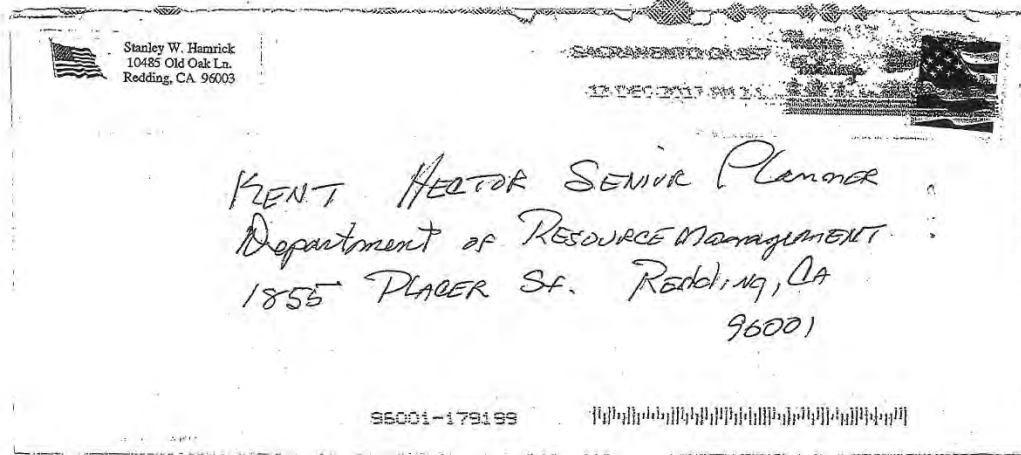 Stanley W. Hamrick
10485 Old Oak Ln.
Redding, CA 96003
SACRAMENTO CA 957
12 DEC 2017 PM 2 L
KENT HECTOR SENIOR PLANNER
Department of RESOURCE Management
1855 PLACER St. Redding, CA
96001
96001-179199